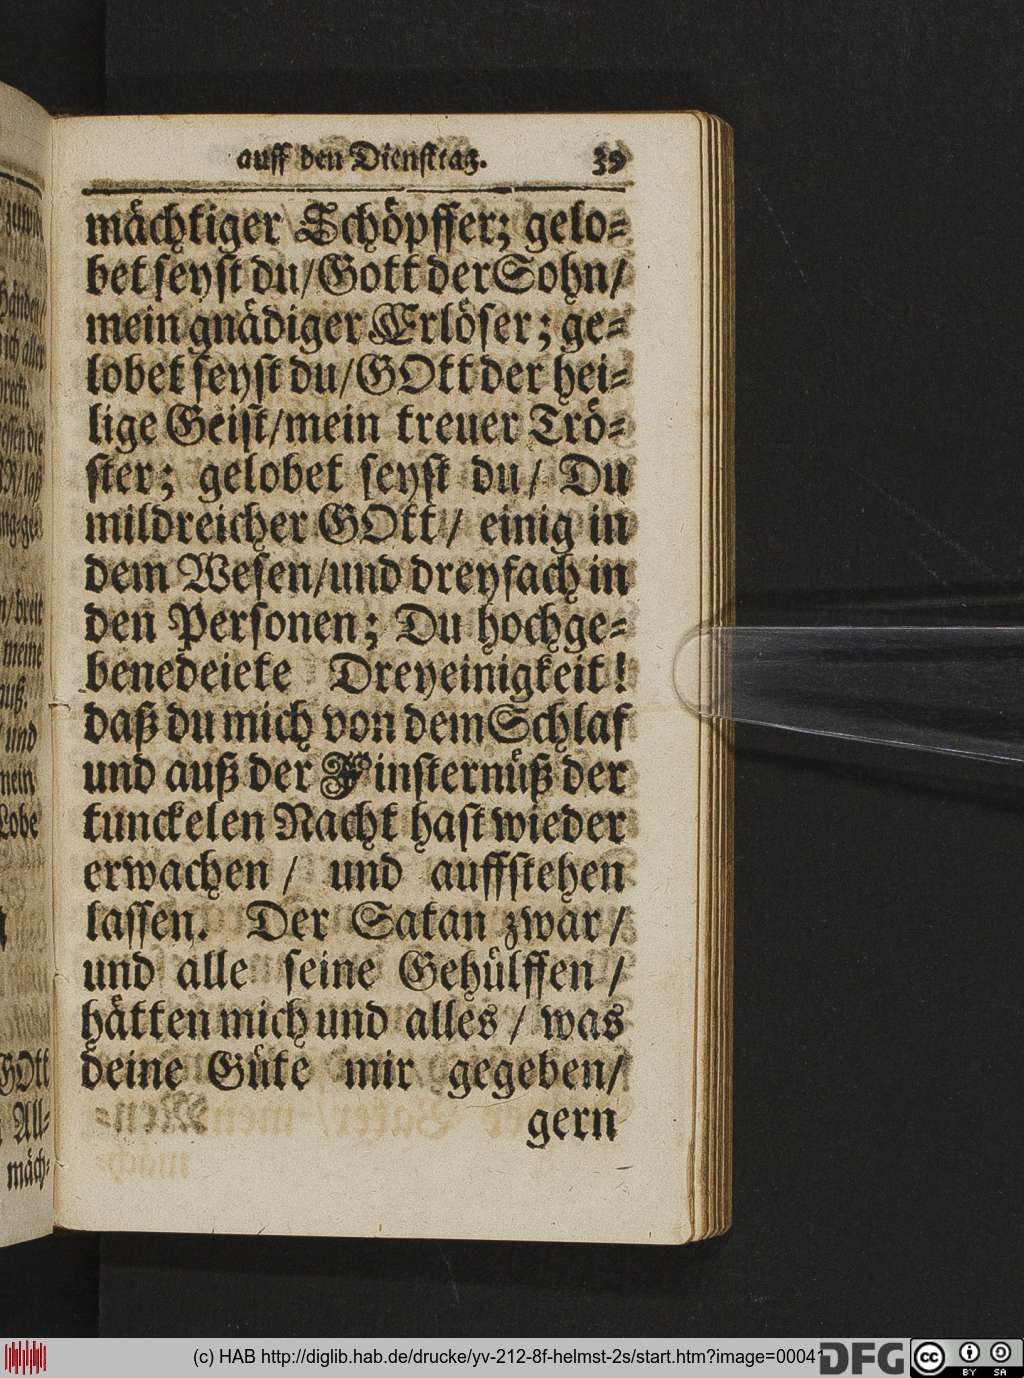 auff den Dienstag. 39
mächtiger Schöpffer; gelo-
bet seyst du/Gott der Sohn/
mein gnädiger Erlöser; ge-
lobet seyst du/GOtt der hei-
lige Geist/mein treuer Trö-
ster; gelobet seyst du/ Du
mildreicher GOtt/ einig in
dem Wesen/und dreyfach in
den Personen; Du hochge-
benedeiete Dreyeinigkeit!
daß du mich von dem Schlaf
und auß der Finsternüß der
tunckelen Nacht hast wieder
erwachen/ und auffstehen
lassen. Der Satan zwar/
und alle seine Gehülffen/
hätten mich und alles/ was
deine Güte mir gegeben/
gern
Händen/
ich aller
/breit
meine
auß.
und
mein
Lobe
GOtt
All-
mäch-
(c) HAB http://diglib.hab.de/drucke/yv-212-8f-helmst-2s/start.htm?image=00041
DFG
cc BY SA